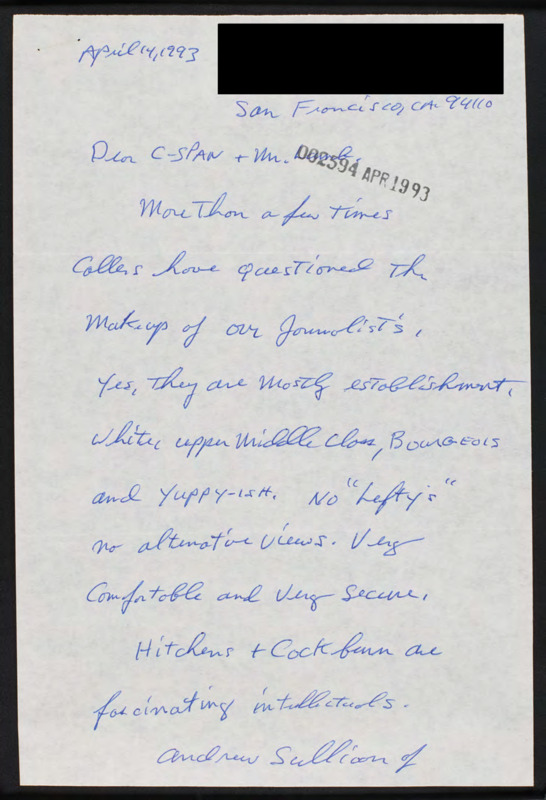 April 14, 1993
San Francisco, CA. 94110
Dear C-SPAN + Mr.
002594 APR 1993
More Than a few Times
Callers have questioned The
Makeup of our Journalist's.
Yes, They are Mostly establishment,
White, upper Middle Class, BOURGEOIS
and YUPPY-ISH. No "Lefty's"
no alternative views. Very
Comfortable and Very Secure.
Hitchens + Cockburn are
fascinating intellectuals.
Andrew Sullivan of